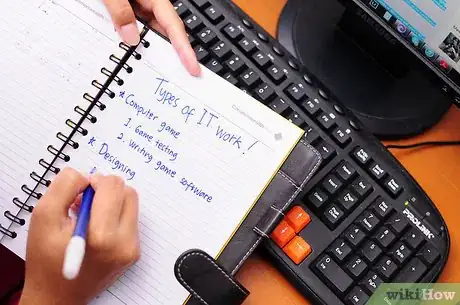 Types of IT work!
* Computer game
1. Game testing
2. Writing game software
* Designing
PROLINK
wikiHow